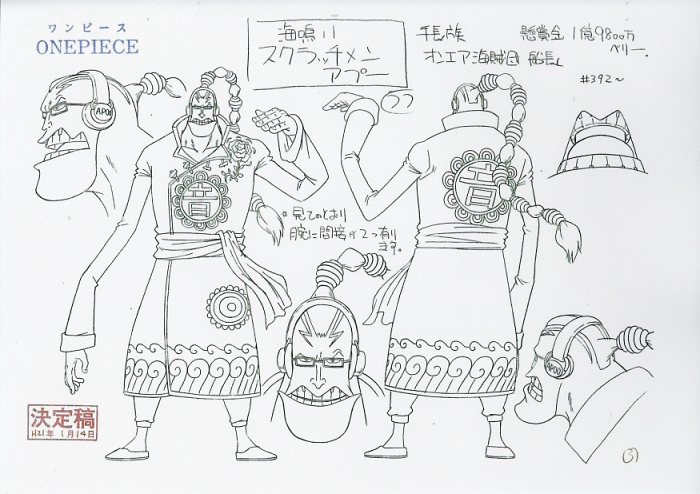 ワンピース
ONEPIECE
海鳴り
スクラッチメン
アプー
手長族 懸賞金 1億9800万
ベリー。
オンエア海賊団 船長
#392~
APOO
音
音
※見てのとおり
腕に間接が2つ有り
ます。
APOO
決定稿
H21年1月14日
3